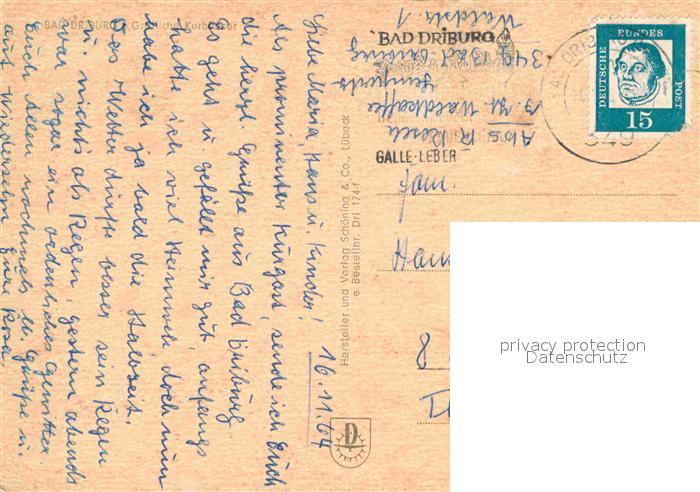 BAD DRIBURG, Gräfliche Kurhäuser
16.11.64
Liebe Maria, Hans u. Kinder!
Als prominenter Kurgast, sende ich Euch
die herzl. Grüße aus Bad Driburg
Es geht u. gefällt mir gut, anfangs
hatte ich viel Heimweh, doch nun
habe ich ja bald die Halbzeit.
Das Wetter dürfte besser sein Regen
u. nichts als Regen, gestern abends
war sogar ein ordentliches Gewitter.
Euch allen nochmals lb. Grüße u.
auf Wiedersehn Eure Rosa.
Hersteller und Verlag Schöning & Co., Lübeck
Bestellnr. Dri 174 f
Abs. R.
Waldkaffee
349 Bad Driburg
Waldstr. 1
BAD DRIBURG
GALLE-LEBER
349
DEUTSCHE BUNDES POST
15
Fam.
8
privacy protection
Datenschutz